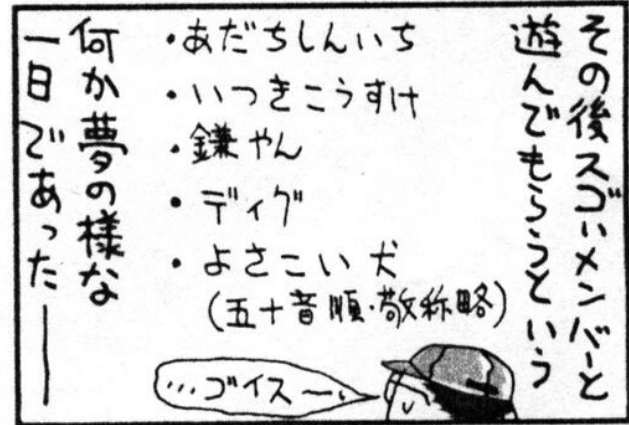 その後スゴいメンバーと
遊んでもらうという
・あだちしんいち
・いつきこうすけ
・鎌やん
・ディグ
・よさこい犬
(五十音順・敬称略)
何か夢の様な
一日であった――
…ゴイスー